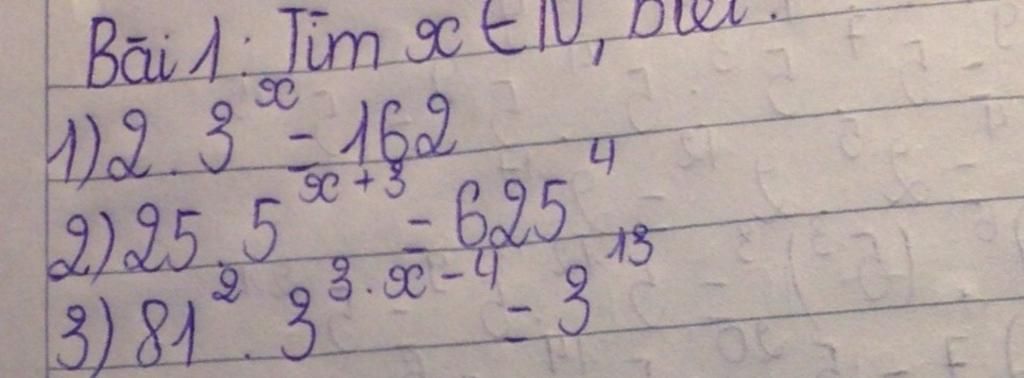 Bài 1: Tìm x ∈ N, biết:
1) 2 . 3^x = 162
2) 25 . 5^(x + 3) = 625^4
3) 81^2 . 3^(3 . x - 4) = 3^13